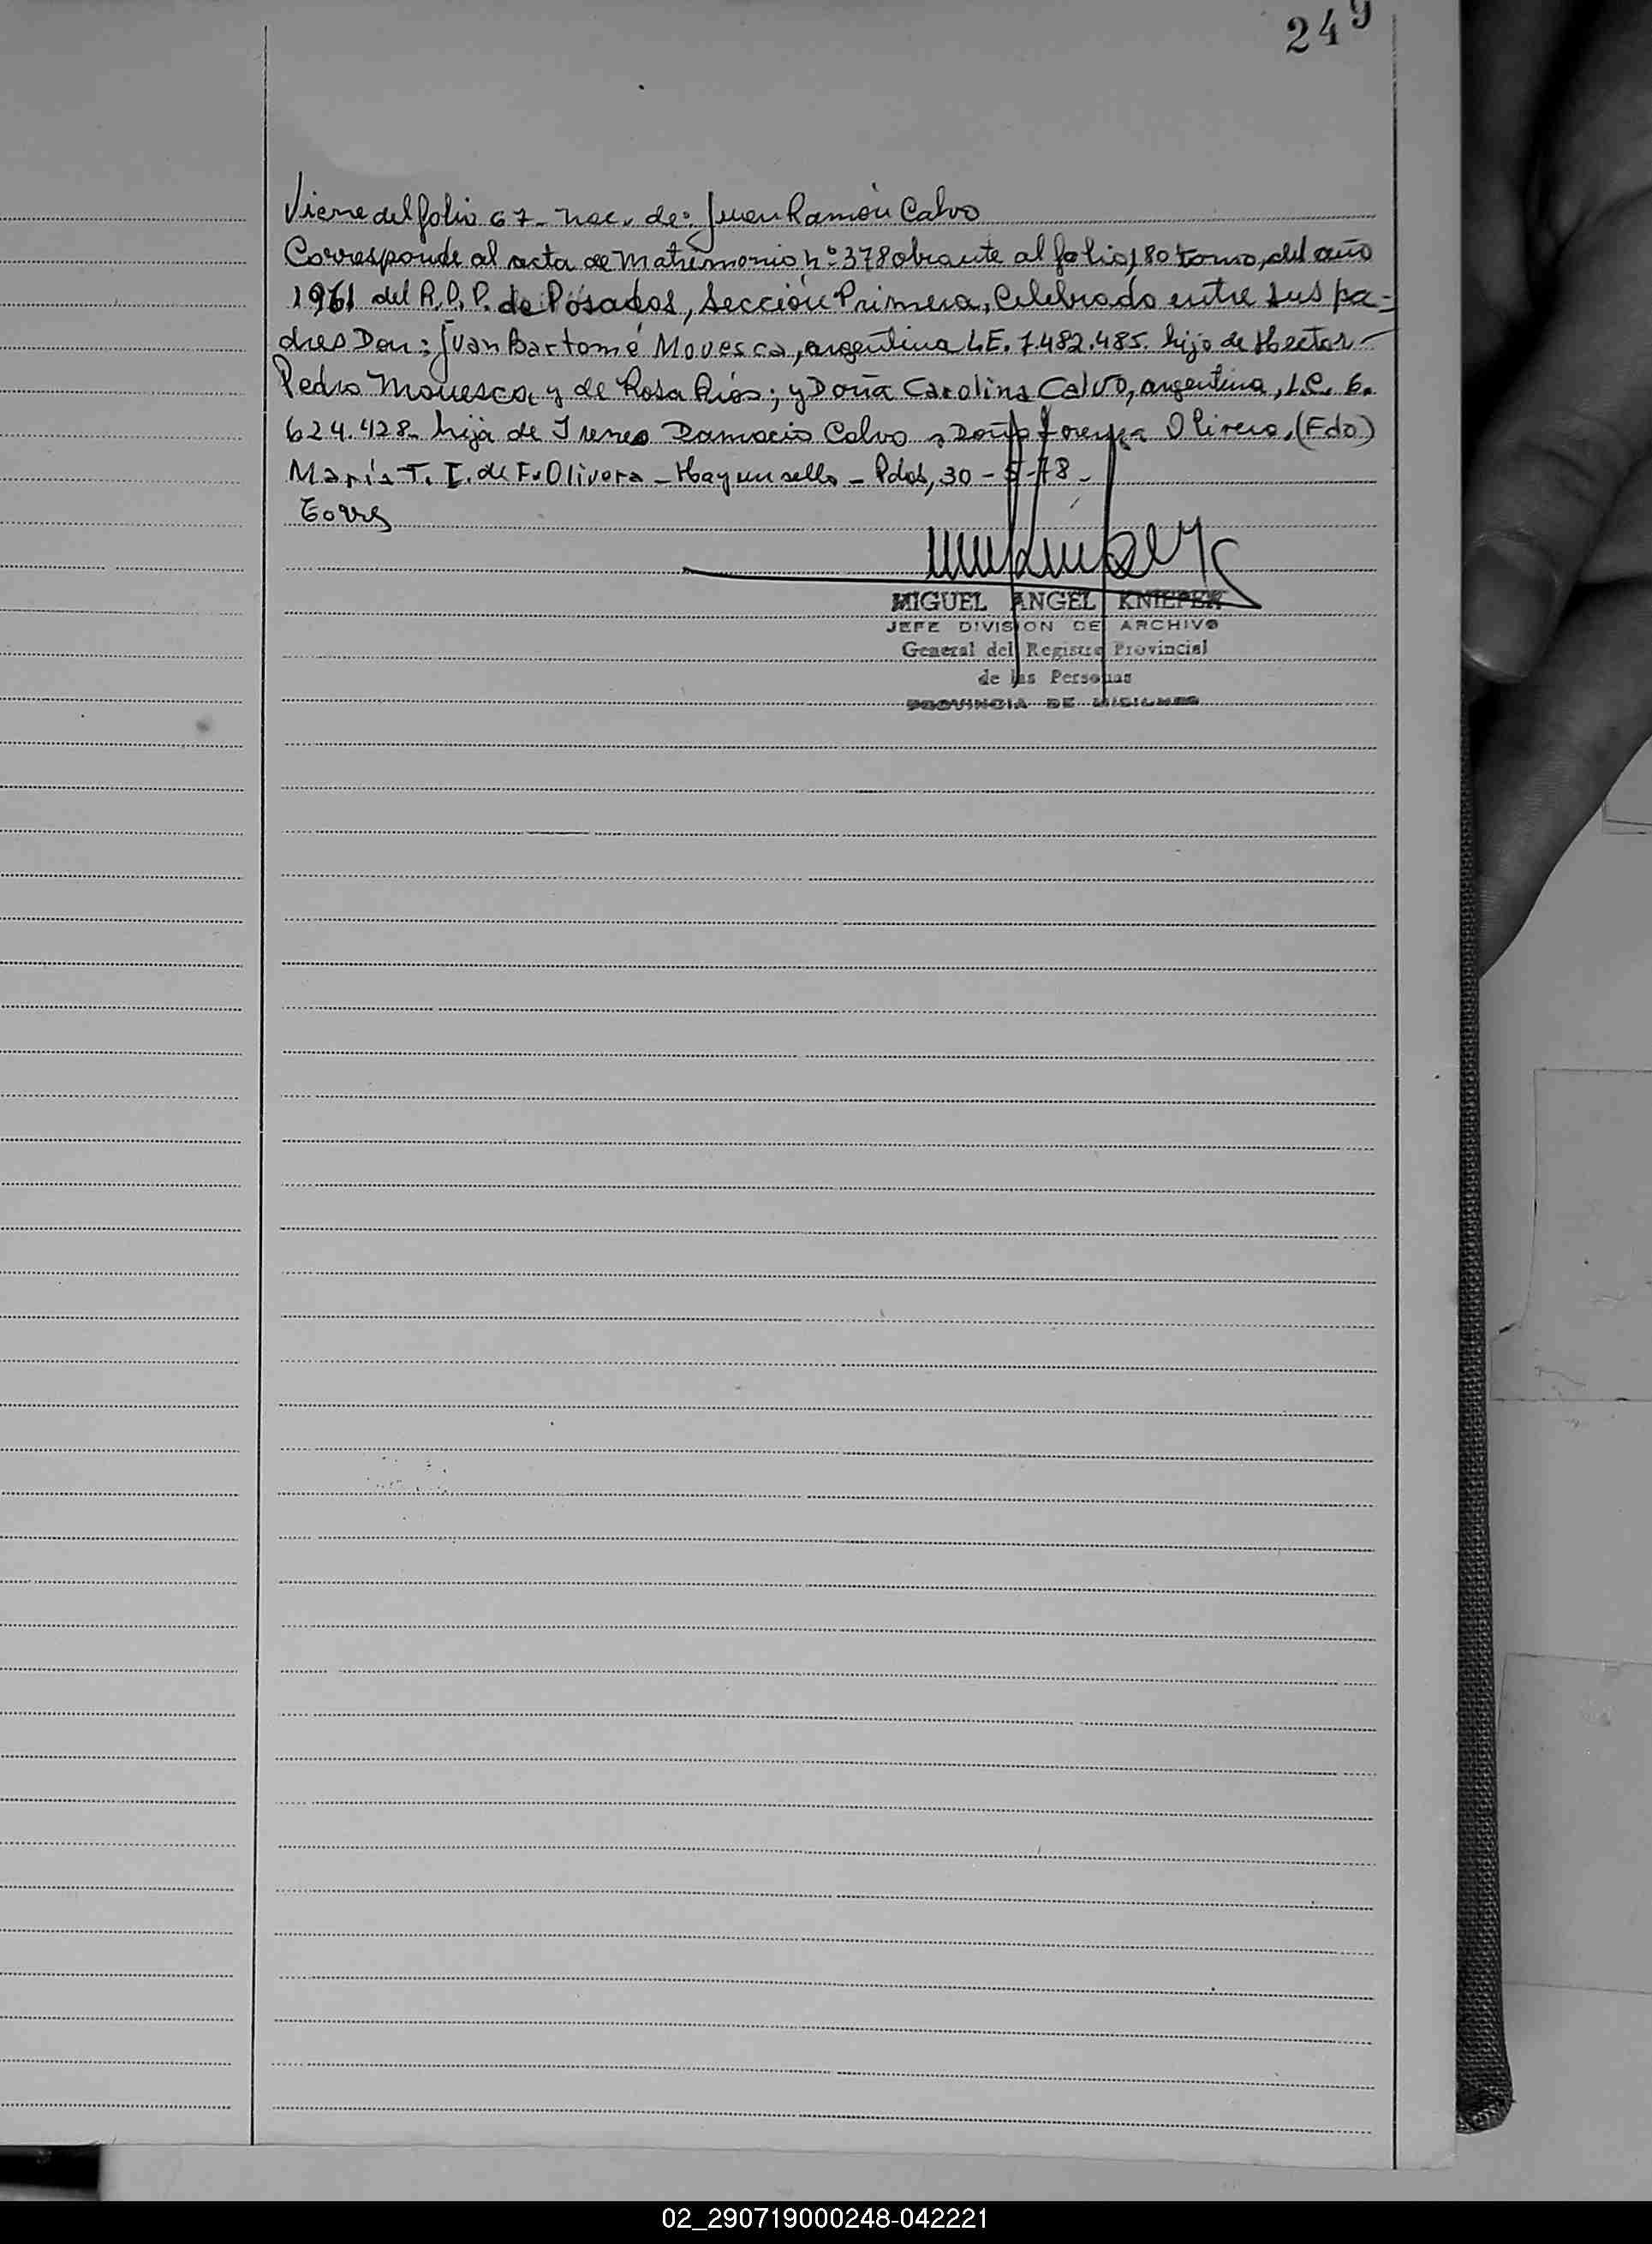 249
Viene del folio 67 - nac. de: Juan Ramón Calvo
Corresponde al acta de Matrimonio nº 378 obrante al folio 180 tomo, del año
1961 del R.P.P. de Posadas, Sección Primera, Celebrado entre sus pa-
dres Don: Juan Bartomé Movesca, argentina L.E. 7.482.485. hijo de Hector -
Pedro Movesca y de Rosa Ríos; y Doña Carolina Calvo, argentina, L.C. 6.
624.428 - hija de Ireneo Damacio Calvo y Doña Lorenza Olivera, (Fdo)
María T. I. de F. Olivera - Hay un sello - Pdas, 30 - 5 - 78 -
MIGUEL ANGEL KNIEPER
JEFE DIVISION DE ARCHIVO
General del Registro Provincial
de las Personas
PROVINCIA DE MISIONES
02_290719000248-042221